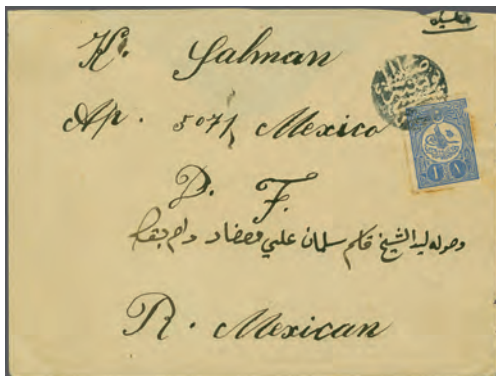 K. Salman
Ap. 5071 Mexico
D. F.
وصوله ليد الشيخ قاسم سلمان علي دام بقاه
R. Mexican